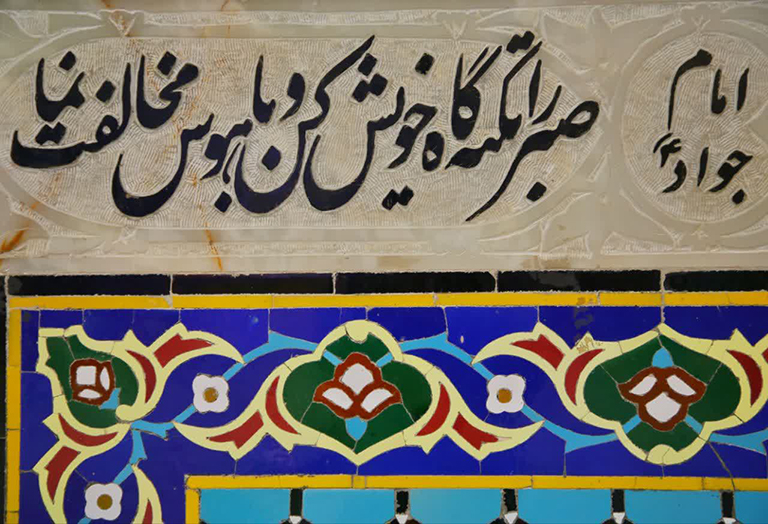 امام
جواد ؑ
صبر را تکیه گاه خویش کن و با هوس مخالفت نما